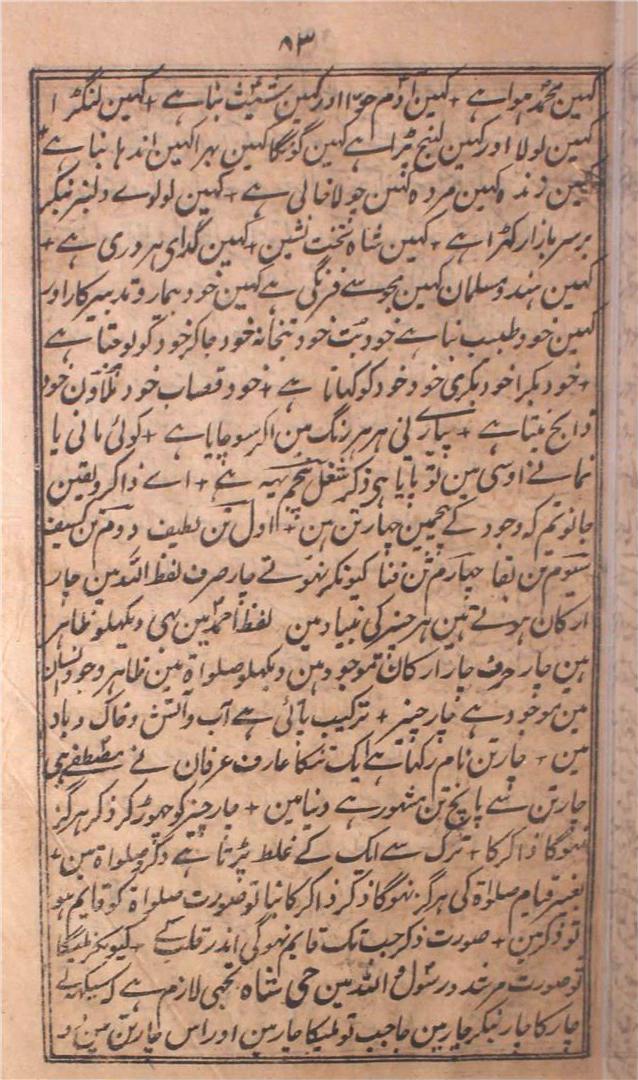 ۸۳
کہین محمدؐ ہوا ہے + کہین آدم حوّا اور کہین شیثؑ بنا ہے + کہین لنگڑا
کہین لولا اور کہین لنج پڑا ہے کہین گونگا کہین بہرا کہین اندہا بنا ہے +
کہین زندہ کہین مردہ کہین چولا خالی ہے + کہین لولوے دلبر بنکر
برسر بازار کہڑا ہے + کہین شاہ تخت نشین + کہین گدای ہر دری ہے +
کہین ہندو مسلمان کہین مجوسے فرنگی ہے کہین خود بیمار و تدبیر کار اور
کہین خود طبیب بنا ہے خود بُت خود بتخانہ خود جاکر خود کو پوجتا ہے
+ خود بکرا خود بکری خود خود کو کہاتا ہے + خود قصاب خود خود
ذابح بنتا ہے + پیارے نی ہر ہر رنگ مین اکر سو چایا ہے + کوئی مانی یا
نمانے اوسی مین تو پایا ہی ذکر شغل پنجم یہہ ہے + اے ذاکر و یقین
جانو تم کہ وجود کے بیچمین چہار تن ہین + اول تن لطیف دوم تن کسیف
سیوم تن بقا چہارم تن فنا کیونکر نہوتے چار حرف لفظ اللہ مین چار
ارکان ہوتے ہین ہر چیز کی بنیاد مین لفظ احمدؐ مین بہی دیکہلو ظاہر
ہین چار حرف چار ارکان موجود ہین دیکہلو صلواۃ مین ظاہر وجود انسان
مین موجود ہے چار چیز + ترکیب پائی ہے آب و آتش و خاک و باد
مین + چار تن نام رکہتا ہے ایک تنکا عارف عرفان نے مصطفےٰ ہی
چار تن سے پانچ تن مشہور ہے دنیا مین + چار چیز کو چہوڑ کر ذکر ہرگز
نہوگا ذاکر کا + ترک سے ایک کے غلط پڑتا ہے ذکر و صلواۃ مین +
بغیر قیام صلوٰۃ کی ہرگز نہوگا ذکر ذاکر کا بنا تو صورت صلواۃ کو قایم ہو
تو ذکر مین + صورت ذکر جب تک قایم نہوگی اندر قلب کے + کیونکر ملیگا
تو صورت مرشد و رسولؐ و اللہ مین حی شاہ تجہی لازم ہے کہ سیکہہ لے
چار کا چار بنکر چار مین جا جب تو ملیکا چار مین اور اس چار تن مین و